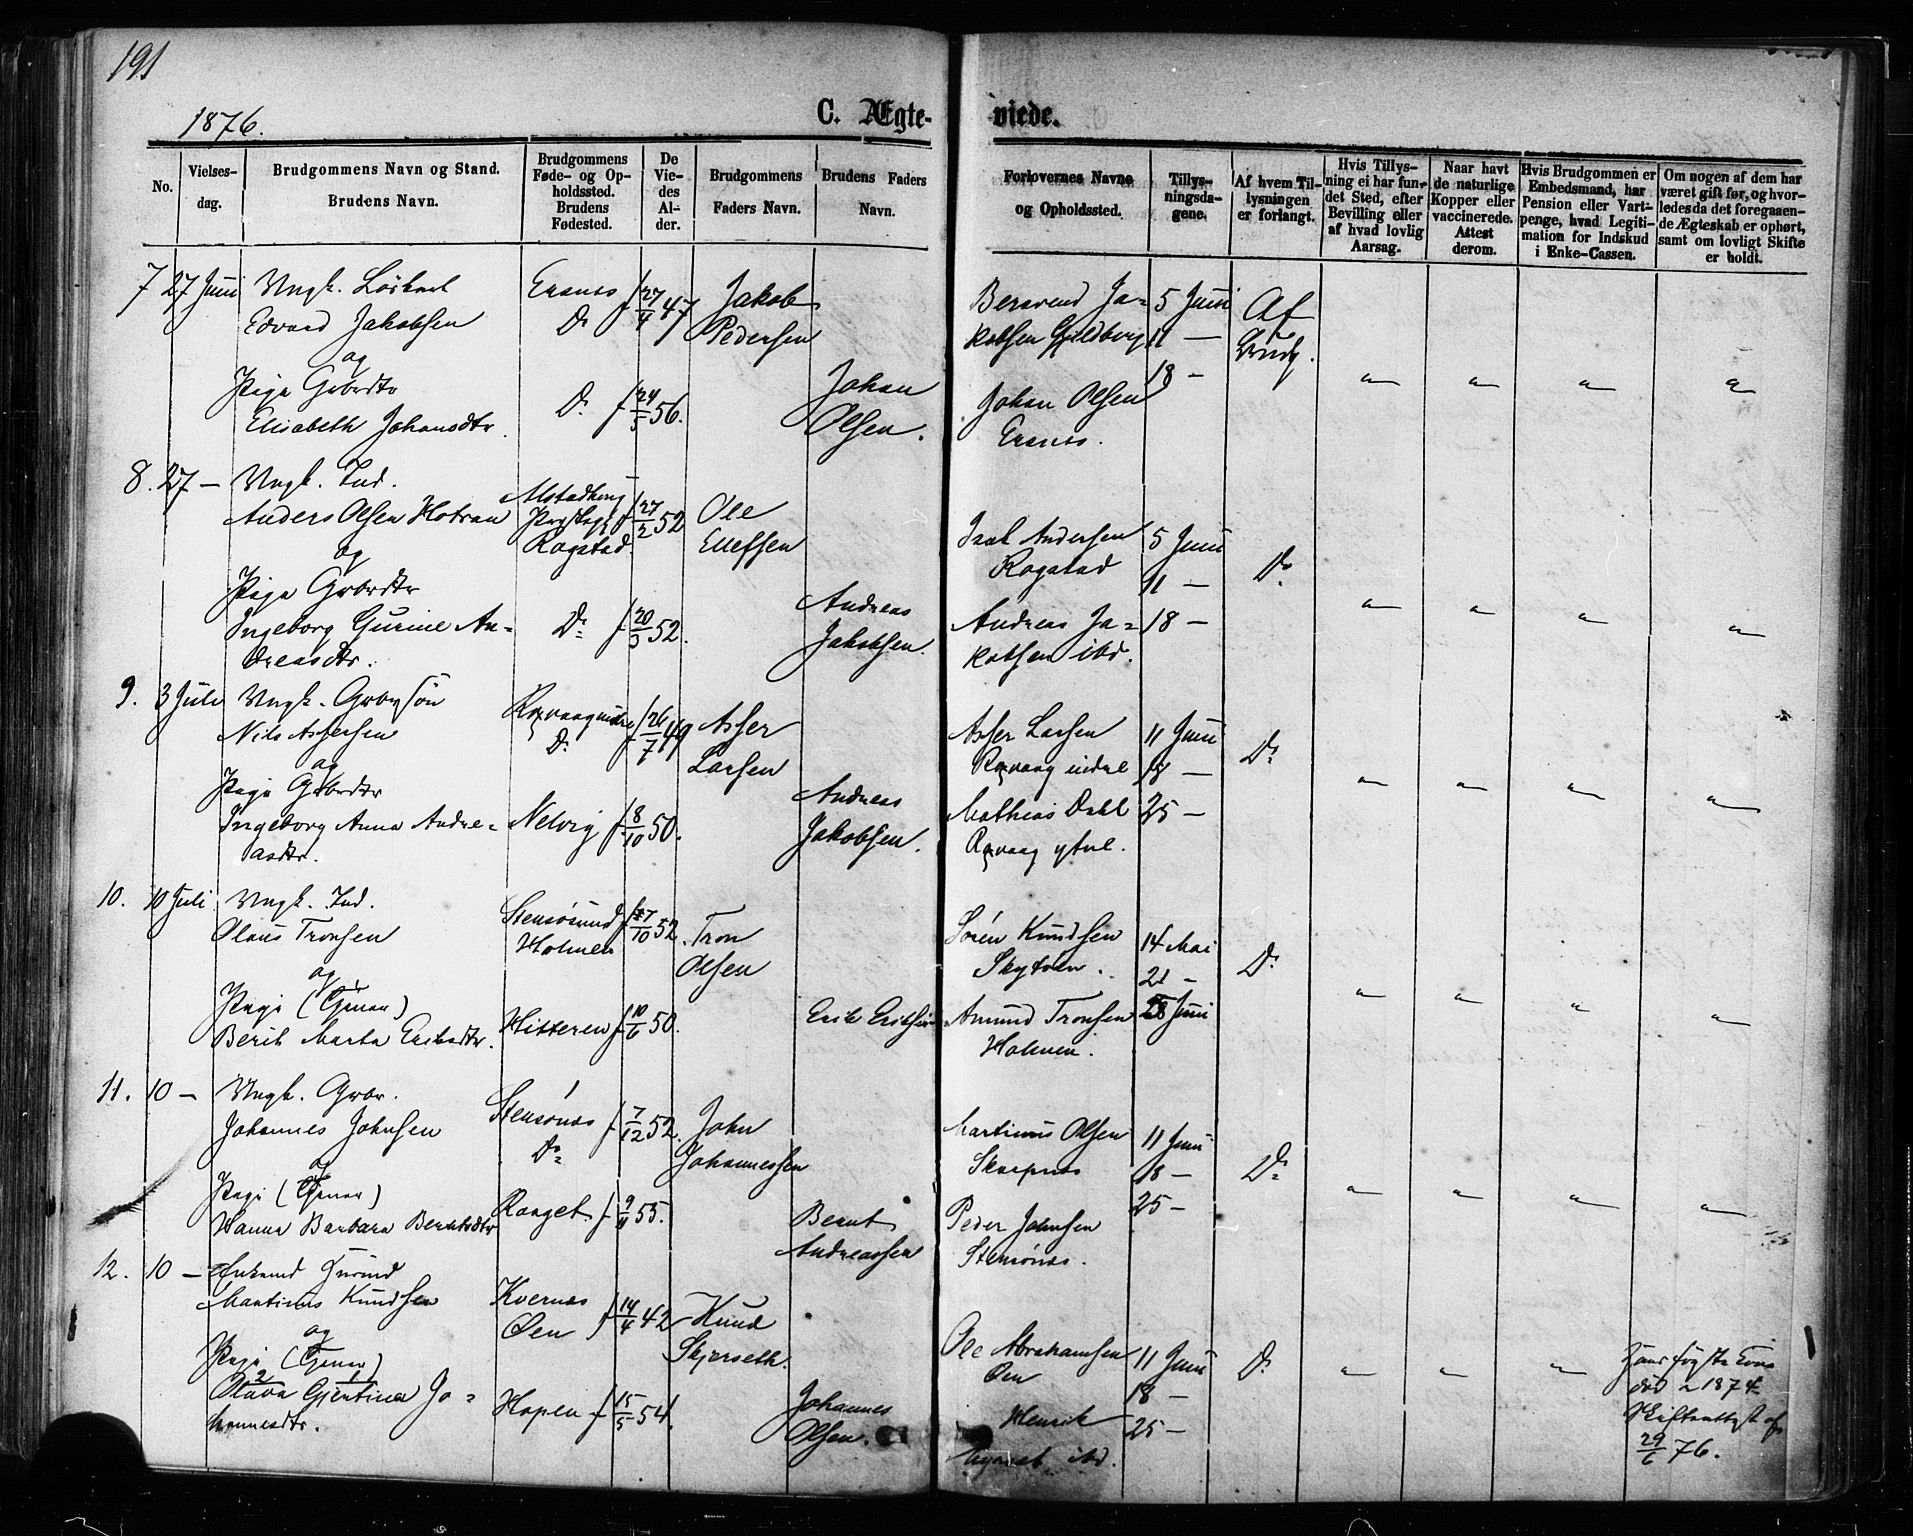 191
1876.
C. Ægte-
viede.
No.
Vielses-
dag.
Brudgommens Navn og Stand.
Brudens Navn.
Brudgommens
Føde- og Op-
holdssted.
Brudens
Fødested.
De
Vie-
des
Al-
der.
Brudgommens
Faders Navn.
Brudens Faders
Navn.
Forlovernes Navne
og Opholdssted.
Tillys-
ningsda-
gene.
Af hvem Til-
lysningen
er forlangt.
Hvis Tillys-
ning ei har fun-
det Sted, efter
Bevilling eller
af hvad lovlig
Aarsag.
Naar havt
de naturlige
Kopper eller
vaccinerede.
Attest
derom.
Hvis Brudgommen er
Embedsmand, har
Pension eller Vart-
penge, hvad Legiti-
mation for Indskud
i Enke-Cassen.
Om nogen af dem har
været gift før, og hvor-
ledes da det foregaaen-
de Ægteskab er ophørt,
samt om lovligt Skifte
er holdt.
7 27 Juni Ungk.
Edvard Jakobsen
og
Pige Grbrdtr
Elisabeth Johansdtr.
D. f 27/4 47
D. f 24/5 56.
Jakob
Pedersen
Johan
Olsen.
Berarend Ja-
kobsen
Johan Olsen
5 Juni
11 —
18 —
Af
Brudg.
8. 27 — Ungk. Ind.
Anders Olsen Hotran
og
Pige Grbrdtr
Ingeborg Gurine An-
dreasdtr.
Rogstad.
f 27/2 52
D. f 20/3 52.
Ole
Ellefsen
Andreas
Jakobsen.
Isak Andersen
Rogstad
Andreas Ja-
kobsen ibd.
5 Juni
11 —
18 —
D.
9. 3 Juli Ungk. Grbrsøn
Nils Assersen
og
Pige Grbrdtr
Ingeborg Anna Andre-
asdtr.
D. f 26/7 49
Nelvig f 8/10 50.
Asser
Larsen
Andreas
Jakobsen.
Asser Larsen
Røxvaag indre
Mathias Dahl
Røxvaag ytre.
11 Juni
18 —
25 —
D.
10. 10 Juli Ungk. Ind.
Olaus Tronsen
og
Pige (Tjener)
Berit Marta Eriksdtr.
Stensøsund
Holmen
f 17/10 52
Hitteren f 10/6 50.
Tron
Olsen
Erik Eriksen
Søren Knudsen
Amund Tronsen
Holmen.
14 Mai
21 —
25 Juni
D.
11. 10 — Ungk. Grbr.
Johannes Johnsen
og
Pige (Tjener)
Hanna Barbara Berntsdtr
Stensønes f 7/12 52.
D.
f 9/11 55.
John
Johannessen
Bernt
Andreassen
Martinus Olsen
Skarpnes
Peder Johnsen
Stensønes.
11 Juni
18 —
25 —
D.
12. 10 — Enkemd
Martinus Knudsen
og
Pige (Tjener)
2 1
Olava Gjertina Jo-
hannesdtr.
Kvernes
Øen f 14/4 42
Hopen f 15/5 54.
Knud
Skjerseth.
Johannes
Olsen.
Ole Abrahamsen
Øen
Henrik
ibd.
11 Juni
18 —
25 —
D.
Hans første Kone
død 1874
Skifteattest af
29/6 76.